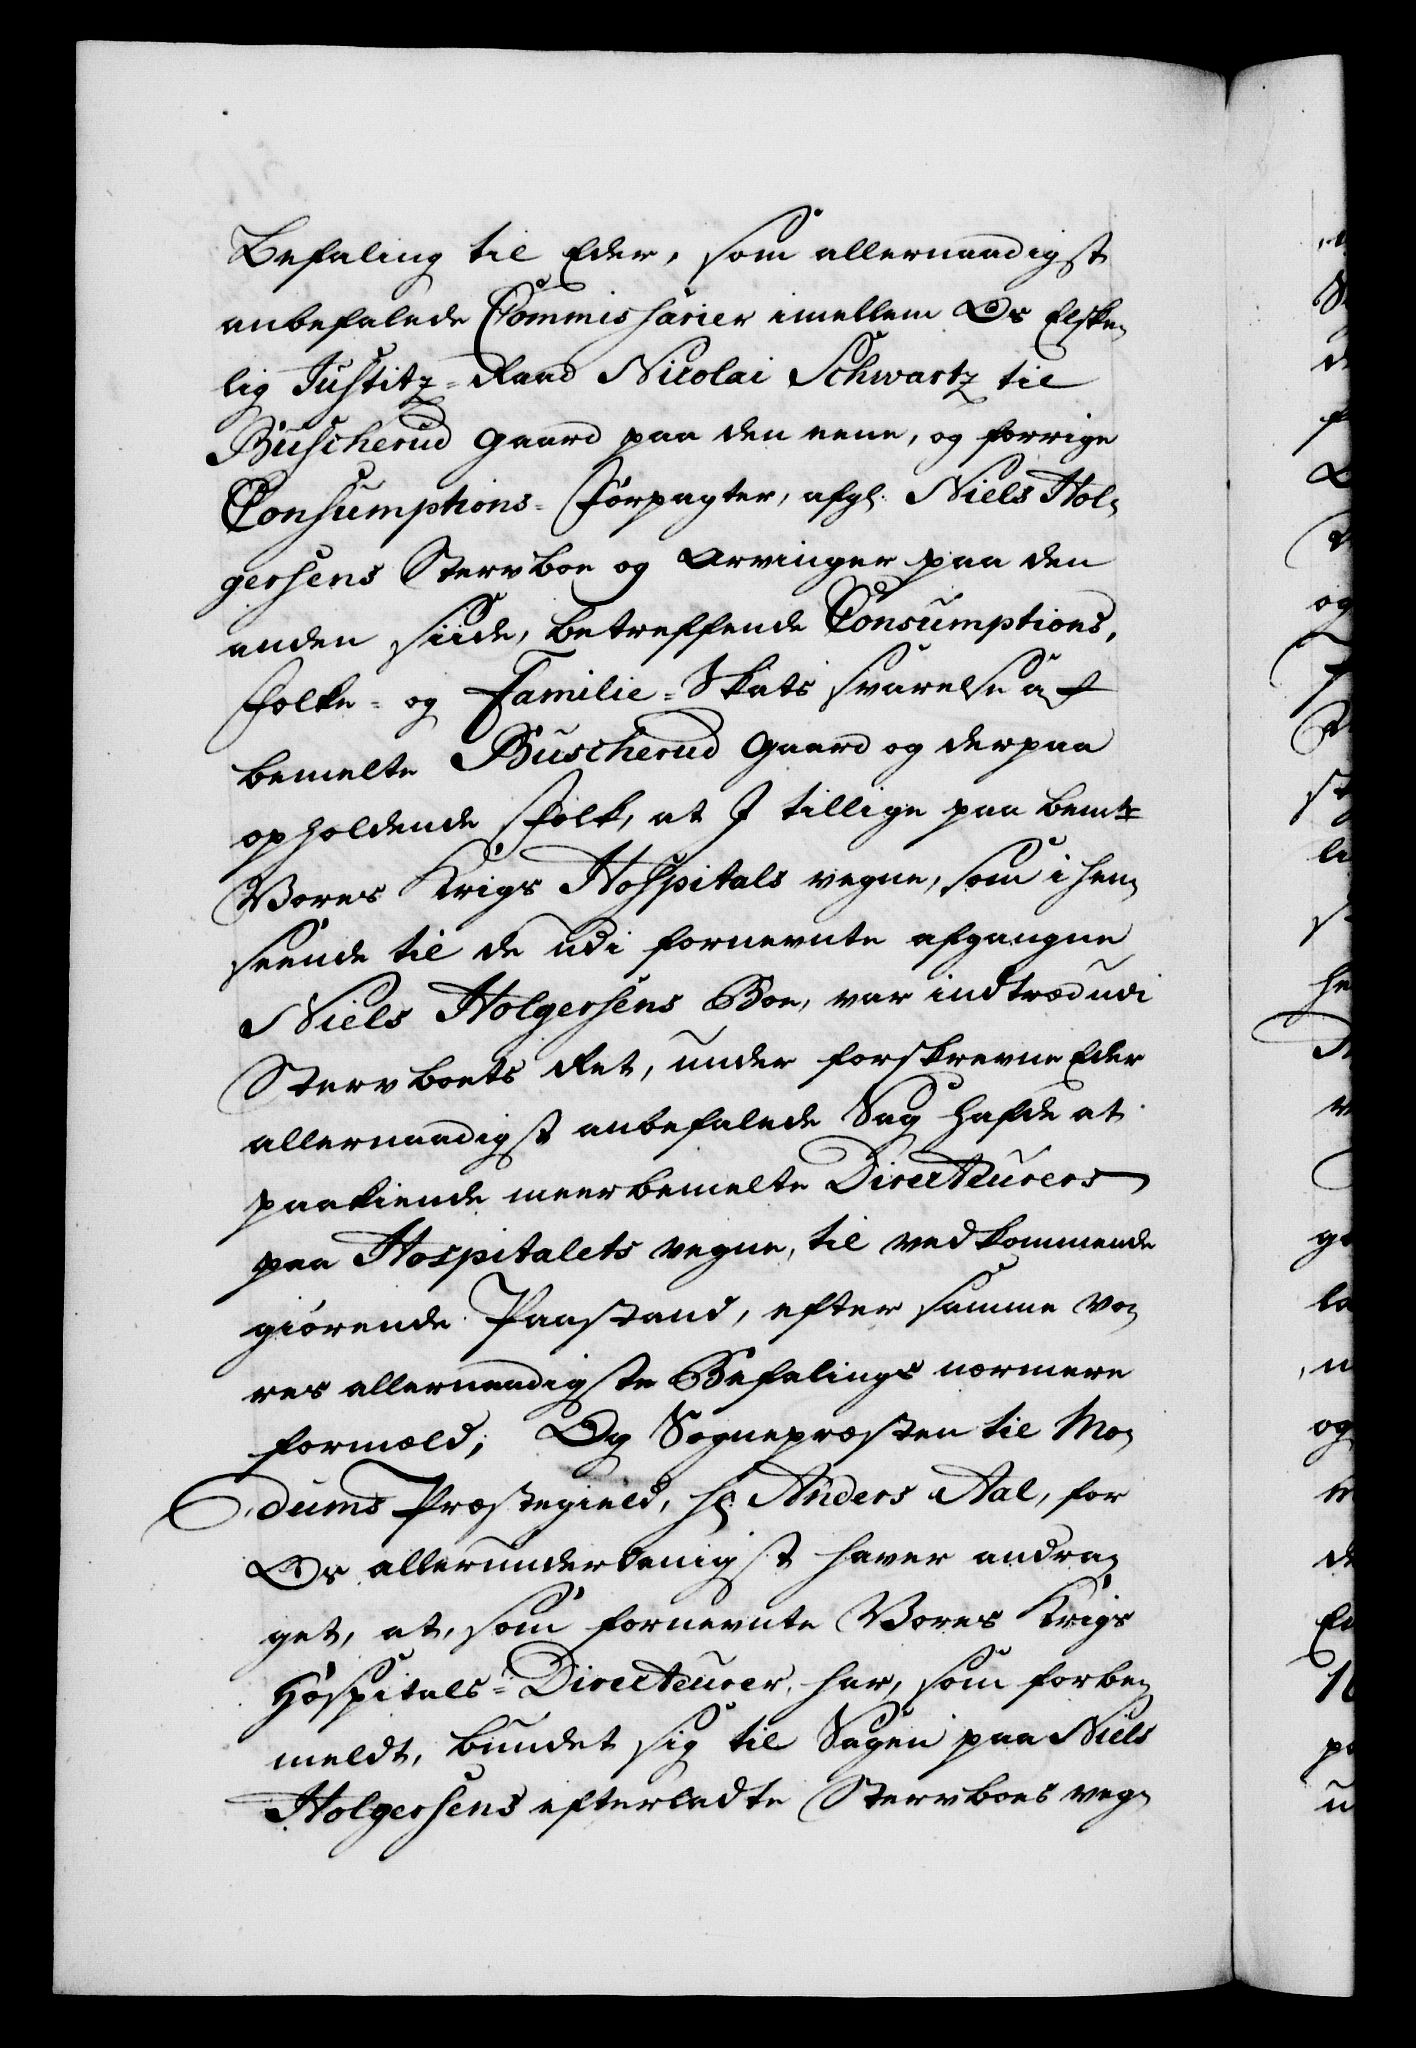 Befaling til Eder, som allernaadigst
anbefalede Commissarier imellem Os Elske-
lig Justitz-Raad Nicolai Schwartz til
Buscherud Gaard paa den eene, og forrige
Consumptions-Forpagter, afg. Niels Hol-
gersens Stervboe og Arvinger paa den
anden siide, betreffende Consumptions,
Folke- og Familie-Skats svarelse af
bemelte Buscherud Gaard og derpaa
opholdende Folk, at I tillige paa bemte
Vores Krigs Hospitals vegne, som i hen-
seende til de udi fornevnte afgangne
Niels Holgersens Boe, var indtræd udi
Stervboets Ret, under forskrevne Eder
allernaadigst anbefalede Sag hafde at
paakiende meerbemelte Directeurers
paa Hospitalets vegne, til vedkommende
giørende Paastand, efter samme Vo-
res allernaadigste Befalings nærmere
formæld; Og Sognepræsten til Mo-
dums Præstegield, Hr. Anders Aal, for
Os allerunderdanigst haver andra-
get, at, som fornevnte Vores Krigs
Hospitals-Directeurer, har, som forbe-
meldt, bundet sig til Sagen paa Niels
Holgersens efterladte Stervboes veg-